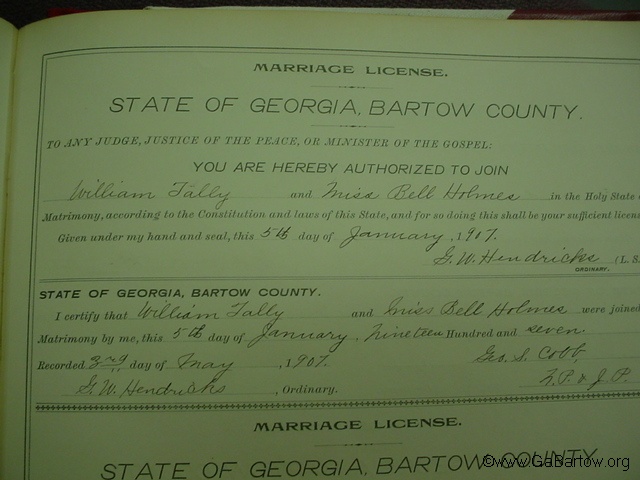 MARRIAGE LICENSE.
STATE OF GEORGIA, BARTOW COUNTY.
TO ANY JUDGE, JUSTICE OF THE PEACE, OR MINISTER OF THE GOSPEL:
YOU ARE HEREBY AUTHORIZED TO JOIN
William Tally and Miss Bell Holmes in the Holy State
Matrimony, according to the Constitution and laws of this State, and for so doing this shall be your sufficient licen
Given under my hand and seal, this 5th day of January, 1907.
G. W. Hendricks (L. S.
ORDINARY.
STATE OF GEORGIA, BARTOW COUNTY.
I certify that William Tally and Miss Bell Holmes were joined
Matrimony by me, this 5th day of January, Nineteen Hundred and seven
Recorded 3rd day of May, 1907. Geo. S. Cobb,
G. W. Hendricks, Ordinary. J. P.
MARRIAGE LICENSE.
STATE OF GEORGIA, BARTOW COUNTY.
©www.GaBartow.org